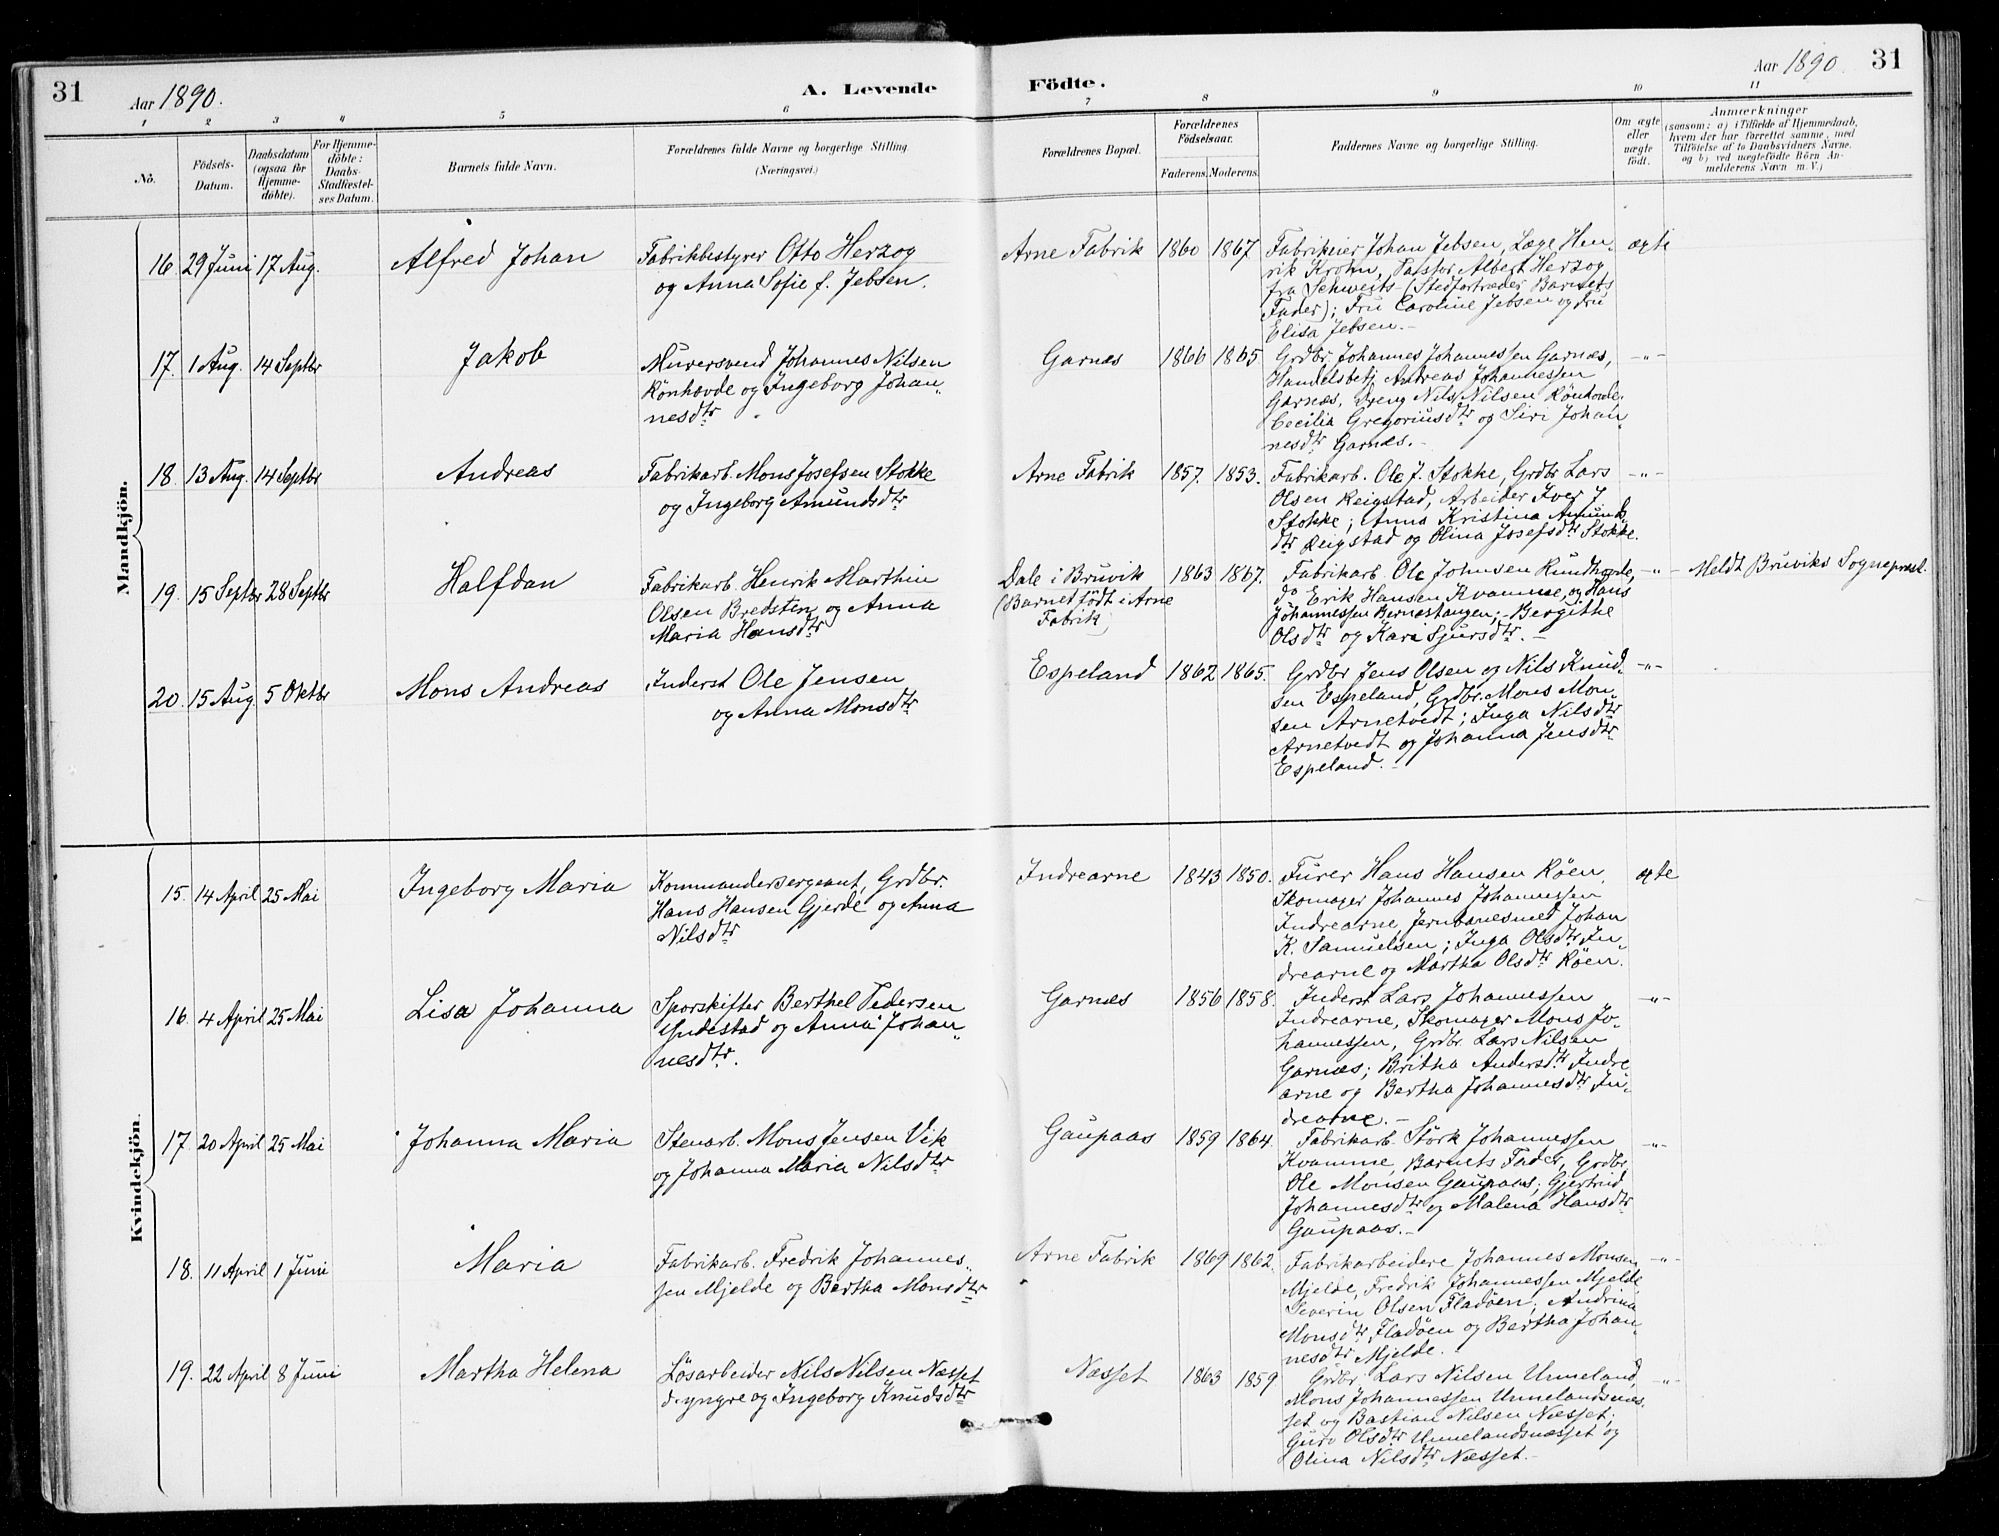 31
Aar 1890.
A. Levende
Födte.
Aar 1890.
31
1
2
3
4
5
6
7
8
9
10
11
No.
Födsels-
Datum.
Daabsdatum
(ogsaa for
Hjemme-
døbte).
For Hjemme-
döbte:
Daabs-
Stadfæstel-
ses Datum.
Barnets fulde Navn.
Forældrenes fulde Navne og borgerlige Stilling.
(Næringsvei.)
Forældrenes Bopæl.
Forældrenes
Födselsaar.
Faderens. Moderens.
Faddernes Navne og borgerlige Stilling.
Om ægte
eller
uægte
födt.
Anmærkninger
(saasom: a) i Tilfælde af Hjemmedaab,
hvem der har forrettet samme, med
Tilföielse af to Daabsvidners Navne.
og b) ved uegtefödte Börn An-
melderens Navn m. V.)
Mandkjön.
16 29 Juni 17 Aug.
Alfred Johan
Fabrikbestyrer Otto Herzog
og Anna Sofie f. Jebsen.
Arne Fabrik
1860 1867
Fabrikeier Johan Jebsen, Læge Hen-
rik Krohn, Pastor Albert Herzog
fra Schweits (Stedfortræder Barnets
Fader); Fru Caroline Jebsen og Fru
Elisa Jebsen.-
ægte
17. 1 Aug. 14 Septbr
Jakob
Murersvend Johannes Nilsen
Rönhovde og Ingeborg Johan-
nesdtr
Garnæs
1866 1865
Grdbr. Johannes Johannessen Garnæs,
Handelsbetj. Andreas Johannessen
Garnæs, Dreng Nils Nilsen Rönhovde,
Cecilia Gregoriusdtr og Siri Johan-
nesdtr Garnæs.-
-"-
18. 13 Aug. 14 Septbr
Andreas
Fabrikarb. Mons Josefsen Stokke
og Ingeborg Amundsdtr
Arne Fabrik
1857. 1853.
Fabrikarb. Ole J. Stokke, Grdbr Lars
Olsen Reigstad, Arbeider Iver J
Stokke; Anna Kristina Amunds
dtr Reigstad og Olina Josefsdtr Stokke.
-"-
19. 15 Septbr 28 Septbr
Halfdan
Fabrikarb. Henrik Marthin
Olsen Bredsten og Anna
Maria Hansdtr
Dale i Bruvik
(Barnet födt i Arne
Fabrik)
1863 1867.
Fabrikarb. Ole Johnsen Rundhovde,
do Erik Hansen Kvamme, og Hans
Johannessen Bernestangen; Bergithe
Olsdtr og Kari Sjursdtr.-
-"-
Meldt Bruviks Sognepræst.
20. 15 Aug. 5 Oktbr
Mons Andreas
Inderst Ole Jensen
og Anna Monsdtr
Espeland
1862 1865.
Grdbr Jens Olsen og Nils Knud-
sen Espeland, Grdbr. Mons Mon-
sen Arnetvedt; Inga Nilsdtr
Arnetvedt og Johanna Jensdtr
Espeland.-
-"-
Kvindekjön.
15. 14 April 25 Mai
Ingeborg Maria
Kommandersergeant, Grdbr.
Hans Hansen Gjerde og Anna
Nilsdtr
Indrearne
1843 1850.
Furer Hans Hansen Röen,
Skomager Johannes Johannessen
Indrearne, Jernbanesmed Johan
K. Samuelsen; Inga Olsdtr In-
drearne og Martha Olsdtr Röen.
ægte
16. 4 April 25 Mai
Lisa Johanna
Sporskifter Berthel Pedersen
Yndestad og Anna Johan-
nesdtr.
Garnæs
1856 1858.
Inderst Lars Johannessen
Indrearne, Skomager Mons Jo-
hannessen, Grdbr Lars Nilsen
Garnæs; Britha Andersdtr Indre
arne og Bertha Johannesdtr In-
drearne.-
-"-
17. 20 April 25 Mai
Johanna Maria
Stenarb. Mons Jensen Vik
og Johanna Maria Nilsdtr
Gaupaas
1859 1864.
Fabrikarb. Störk Johannessen
Kvamme, Barnets Fader, Grdbr.
Ole Monsen Gaupaas; Gjertrud
Johannesdtr og Malena Hansdtr
Gaupaas.-
-"-
18. 11 April 1 Juni
Maria
Fabrikarb. Fredrik Johannes-
sen Mjelde og Bertha Monsdtr
Arne Fabrik
1869 1862.
Fabrikarbeidere Johannes Monsen
Mjelde, Fredrik Johannessen Mjelde
Severin Olsen Fladöen; Andrina
Monsdtr Fladöen og Bertha Johan-
nesdtr Mjelde.
-"-
19. 22 April 8 Juni
Martha Helena
Løsarbeider Nils Nilsen Næsset
d. yngre og Ingeborg Knudsdtr
Næsset
1863 1859
Grdbr Lars Nilsen Unneland,
Mons Johannessen Unnelandsnæs-
set og Bastian Nilsen Næsset;
Guro Olsdtr Unnelandsnæsset og
Olina Nilsdtr Næsset.-
-"-